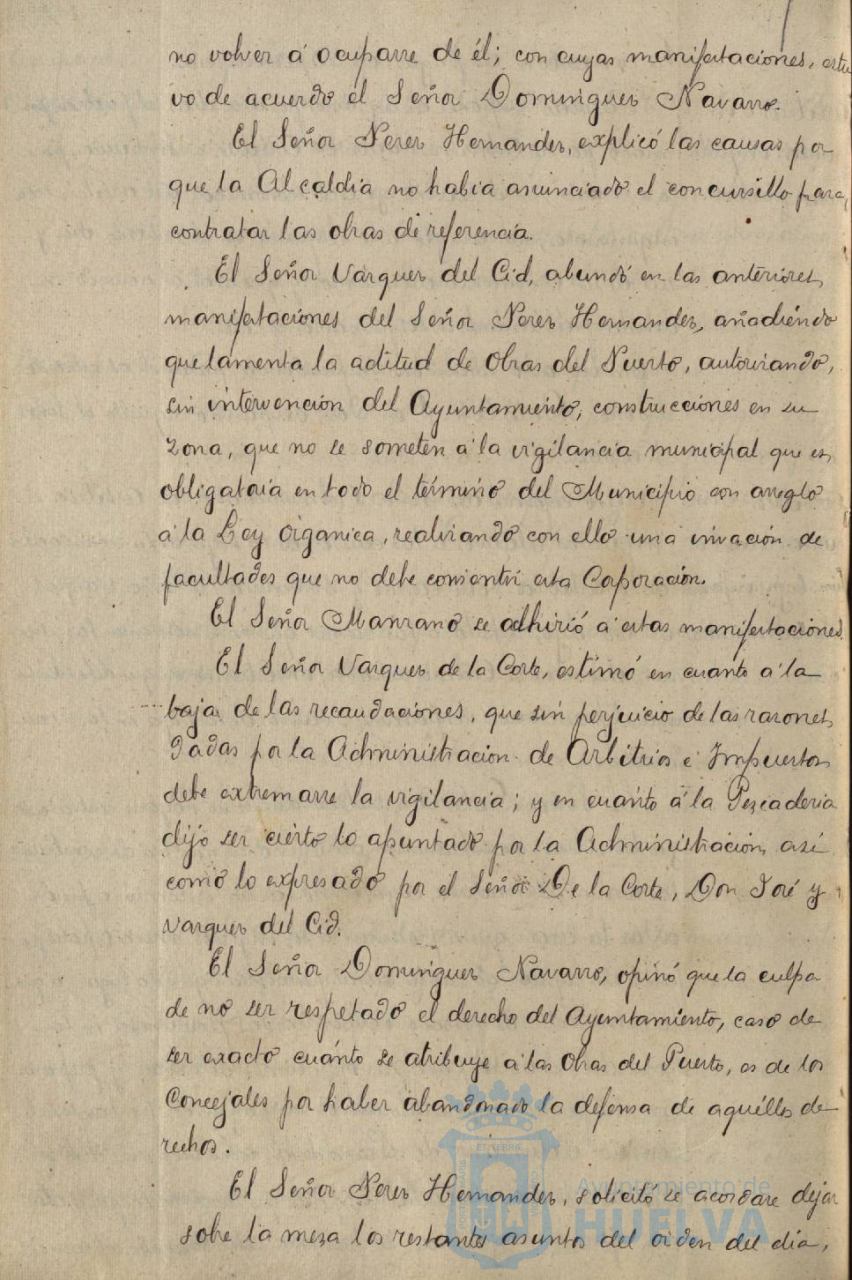 no volver á ocuparse de él; con cuyas manifestaciones, estu
vo de acuerdo el Señor Dominguez Navarro.
El Señor Perez Hernandez, explicó las causas por
que la Alcaldia no habia anunciado el concursillo para
contratar las obras de referencia.
El Señor Vazquez del Cid, abundó en las anteriores
manifestaciones del Señor Perez Hernandez, añadiendo
que lamenta la actitud de Obras del Puerto, autorizando,
sin intervencion del Ayuntamiento, construcciones en su
zona, que no se someten á la vigilancia municipal que es
obligatoria en todo el término del Municipio con arreglo
á la Ley organica, realizando con ello una invación de
facultades que no debe consentir esta Corporación.
El Señor Manzano se adhirió á estas manifestaciones.
El Señor Vazquez de la Corte, estimó en cuanto á la
baja de las recaudaciones, que sin perjuicio de las razones
dadas por la Administracion de Arbitrios é Impuestos
debe extremarse la vigilancia; y en cuanto á la Pescaderia
dijo ser cierto lo apuntado por la Administración, asi
como lo expresado por el Señor De la Corte, Don José y
Vazquez del Cid.
El Señor Dominguez Navarro, opinó que la culpa
de no ser respetado el derecho del Ayuntamiento, caso de
ser exacto cuánto se atribuye á las Obras del Puerto, es de los
Concejales por haber abandonado la defensa de aquéllos de-
rechos.
El Señor Perez Hernandez, solicitó se acordase dejar
sobre la mesa los restantes asuntos del orden del dia,
Ayuntamiento de
HUELVA